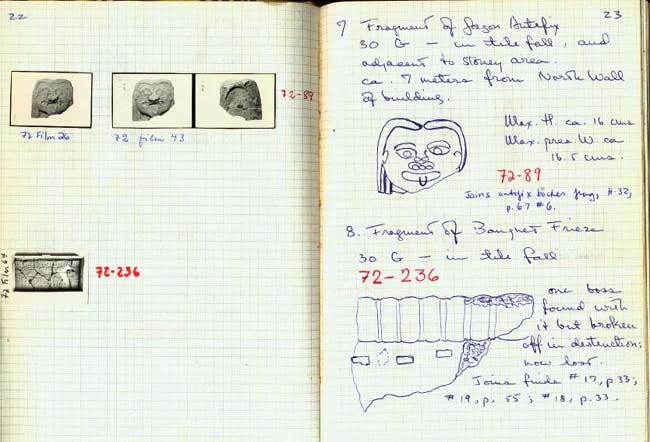 22
72-89
72 Film 26
72 film 43
72 Film 67
72-236
23
7 Fragment of Gorgon Antefix
30 G – in tile fall, and
adjacent to stoney area.
ca. 7 meters from North Wall
of building.
Max. H. ca. 16 cms
Max. pres. W. ca
16.5 cms.
72-89
Joins antefix backer frag, H-32,
p. 67 #6.
8. Fragment of Banquet Frieze
30 G – in tile fall
72-236
one boss
found with
it but broken
off in destruction;
now lost.
Joins finds #17, p. 33;
#19, p. 55; #18, p. 33.